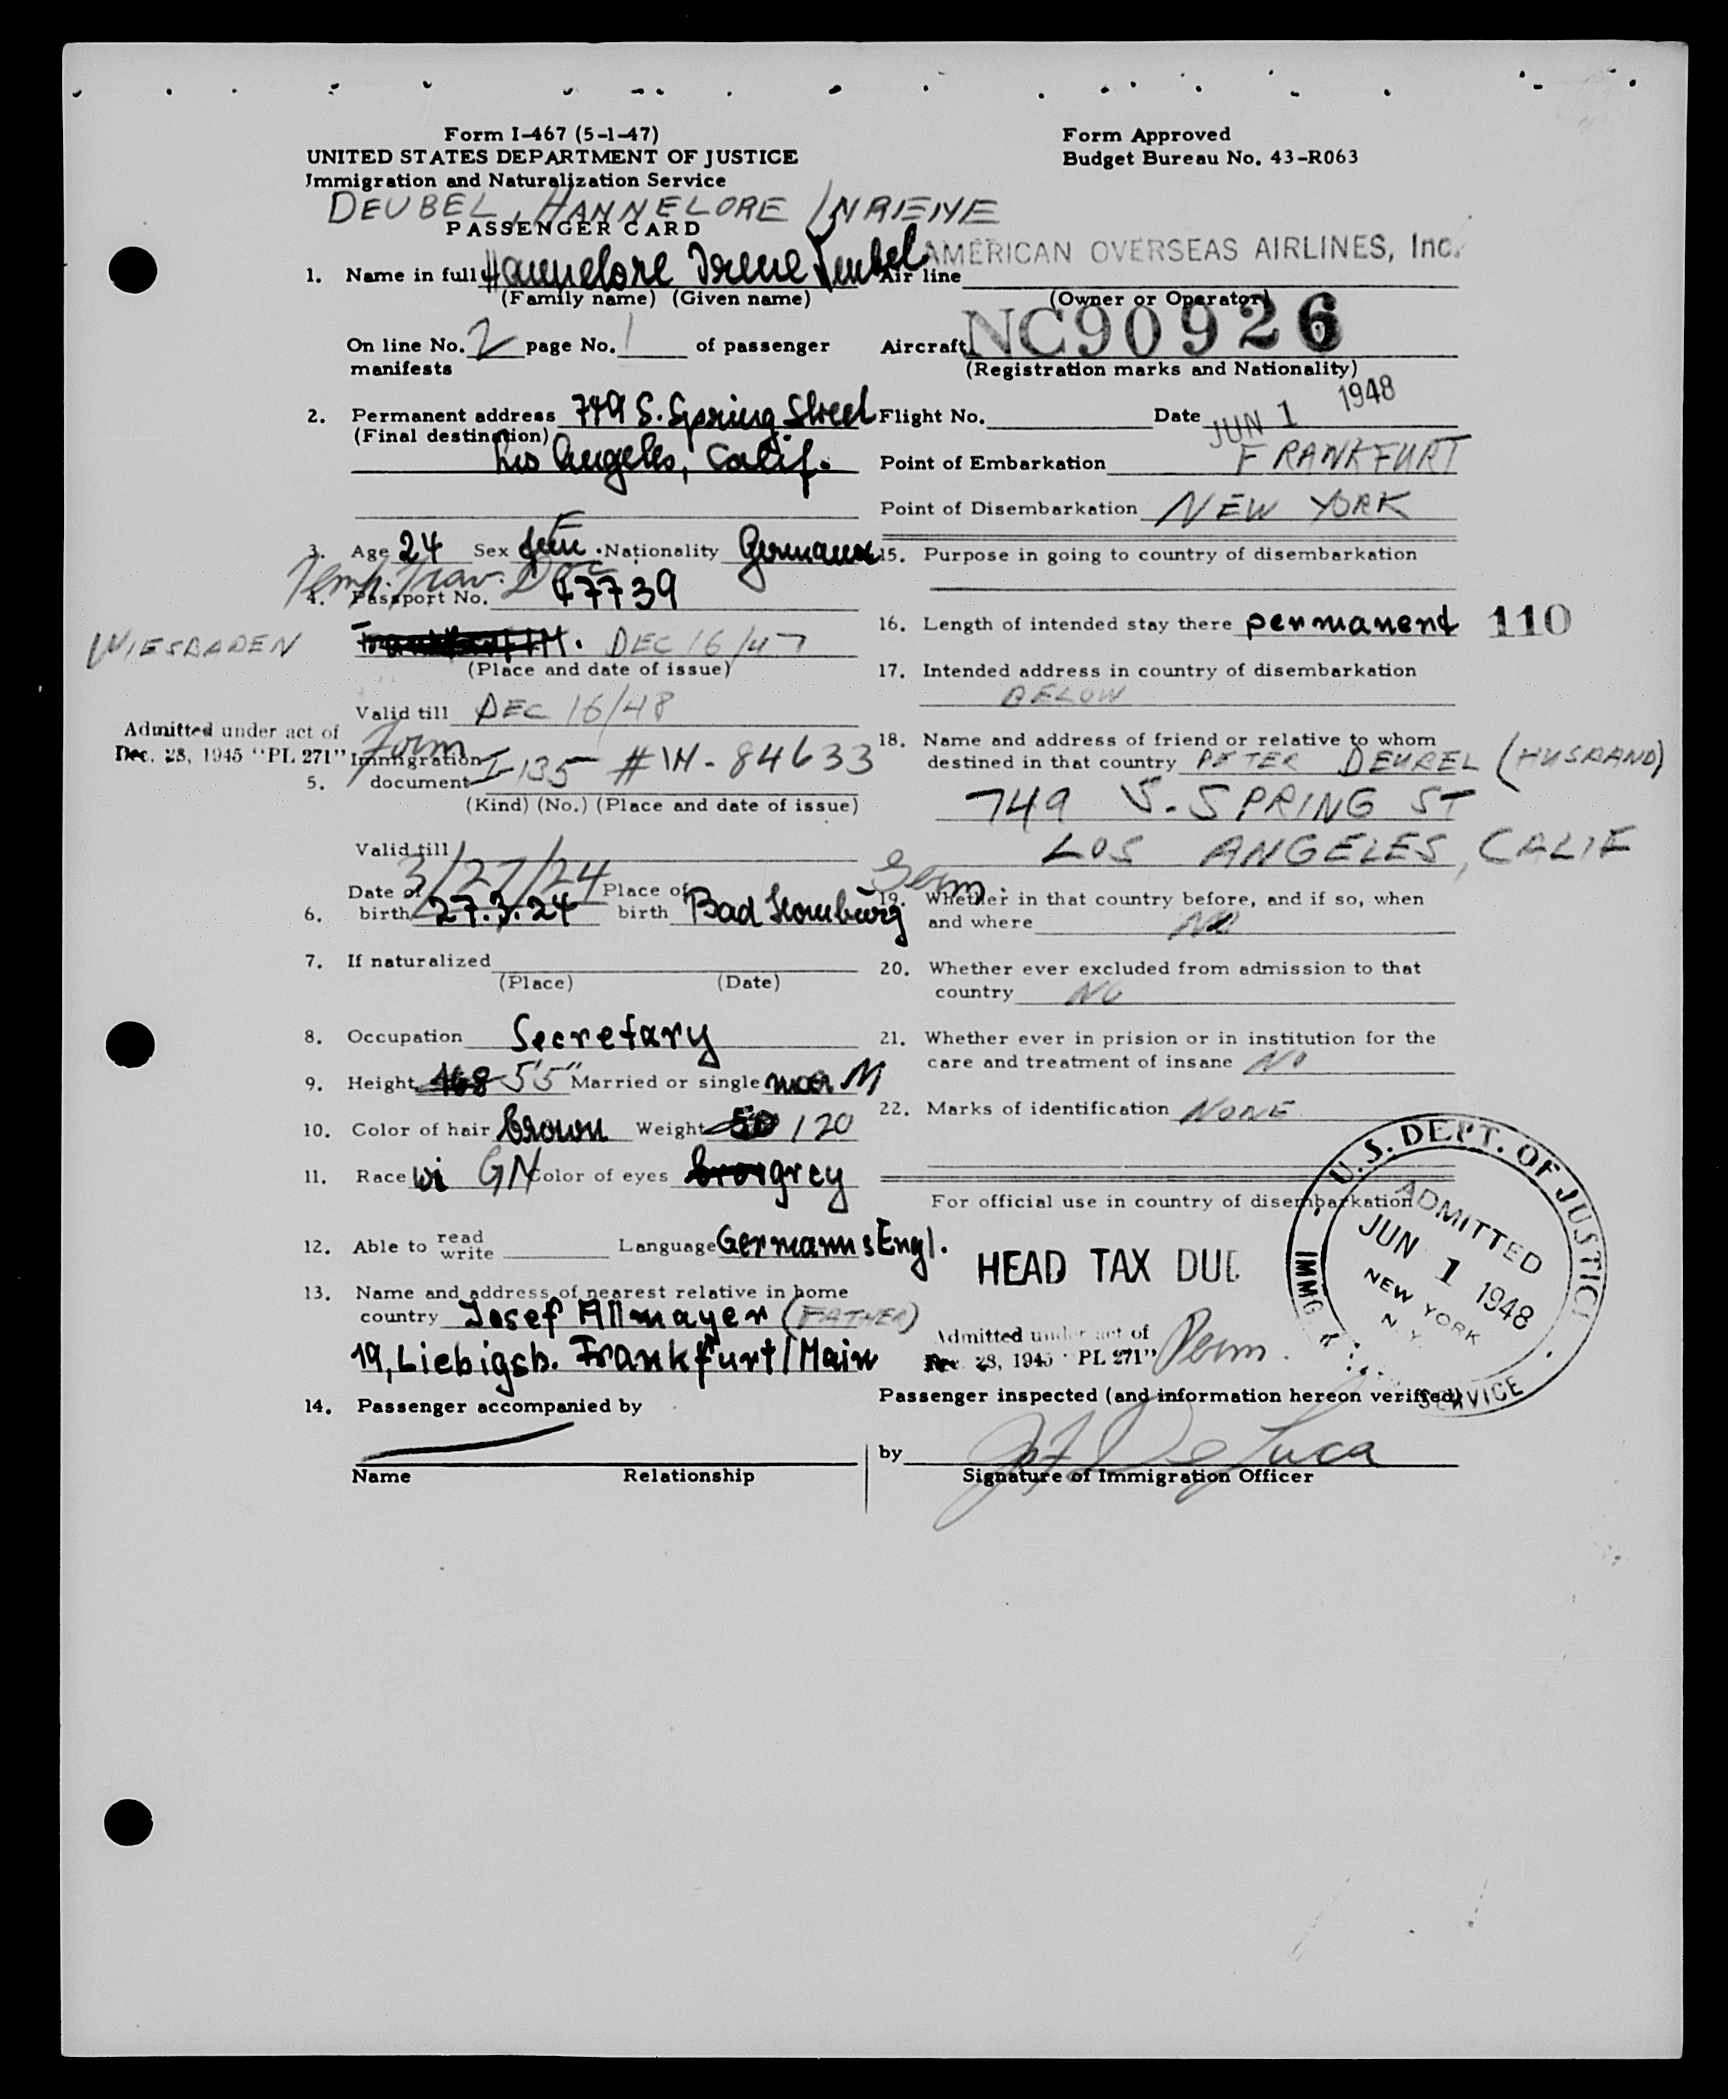 Form I-467 (5-1-47)
UNITED STATES DEPARTMENT OF JUSTICE
Immigration and Naturalization Service
DEUBEL, HANNELORE
PASSENGER CARD
Form Approved
Budget Bureau No. 43-R063
1. Name in full Hannelore Irene Deubel
(Family name) (Given name)
On line No. 2 page No. 1 of passenger
manifests
2. Permanent address 749 S. Spring Street
(Final destination)
Los Angeles, Calif.
3. Age 24 Sex fem F. Nationality
Temp. Trav. Doc
4. Passport No. 47739
WIESBADEN DEC 16/47
(Place and date of issue)
Valid till DEC 16/48
Admitted under act of
Dec. 28, 1945 "PL 271"
Form
5. Immigration
document I-135 # 84633
(Kind) (No.) (Place and date of issue)
Valid till
3/27/24
6. Date of
birth 27.3.24 Place of
birth Bad Homburg Germ.
7. If naturalized
(Place) (Date)
8. Occupation Secretary
9. Height 168 5'5" Married or single mar M
10. Color of hair brown Weight 50 120
11. Race wi GN Color of eyes grey
12. Able to read
write Language Germann s Engl.
13. Name and address of nearest relative in home
country Josef Allmayer (FATHER)
19, Liebigstr. Frankfurt/Main
14. Passenger accompanied by
Name Relationship
AMERICAN OVERSEAS AIRLINES, Inc.
Air line
(Owner or Operator)
Aircraft NC90926
(Registration marks and Nationality)
Flight No. Date JUN 1 1948
Point of Embarkation FRANKFURT
Point of Disembarkation NEW YORK
15. Purpose in going to country of disembarkation
16. Length of intended stay there permanent 110
17. Intended address in country of disembarkation
BELOW
18. Name and address of friend or relative to whom
destined in that country PETER DEUBEL (HUSBAND)
749 S. SPRING ST
LOS ANGELES, CALIF
19. Whether in that country before, and if so, when
and where NO
20. Whether ever excluded from admission to that
country NO
21. Whether ever in prision or in institution for the
care and treatment of insane NO
22. Marks of identification NONE
For official use in country of disembarkation
HEAD TAX DUE
Admitted under act of
Dec. 28, 1945 "PL 271" Perm.
U.S. DEPT. OF JUSTICE
ADMITTED
JUN 1 1948
NEW YORK
N.Y.
IMMG
SERVICE
Passenger inspected (and information hereon verified)
by De Luca
Signature of Immigration Officer